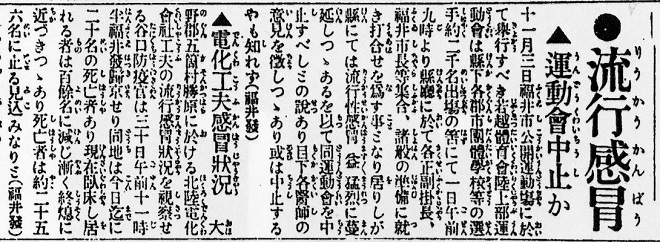 ●流行感冒
▲運動會中止か
十一月三日福井市公開運動場に於
て舉行すべき若越體育會陸上部運
動會は縣下各郡市團體學校等の選
手約二千名出場の筈にて一日午前
九時より縣廳に於て各正副掛長、
福井市長等集合、諸般の準備に就
き打合せを爲す事となり居りしが
縣にては流行性感冒益猛烈に蔓
延しつゝあるを以て同運動會を中
止すべしとの說あり目下各醫師の
意見を徵しつゝあり或は中止する
やも知れず(福井發)
▲電化工夫感冒狀況 大
野郡五箇村勝原に於ける北陸電化
會社工夫の流行感冒狀況を視察せ
る谷口防疫官は三十日午前十一時
半福井發歸京せり同地は今日迄に
二十名の死亡者あり現在臥床し居
れる者は百餘名に減じ漸く終熄に
近づきつゝあり死亡者は約二十五
六名に上る見込みなりと(福井發)